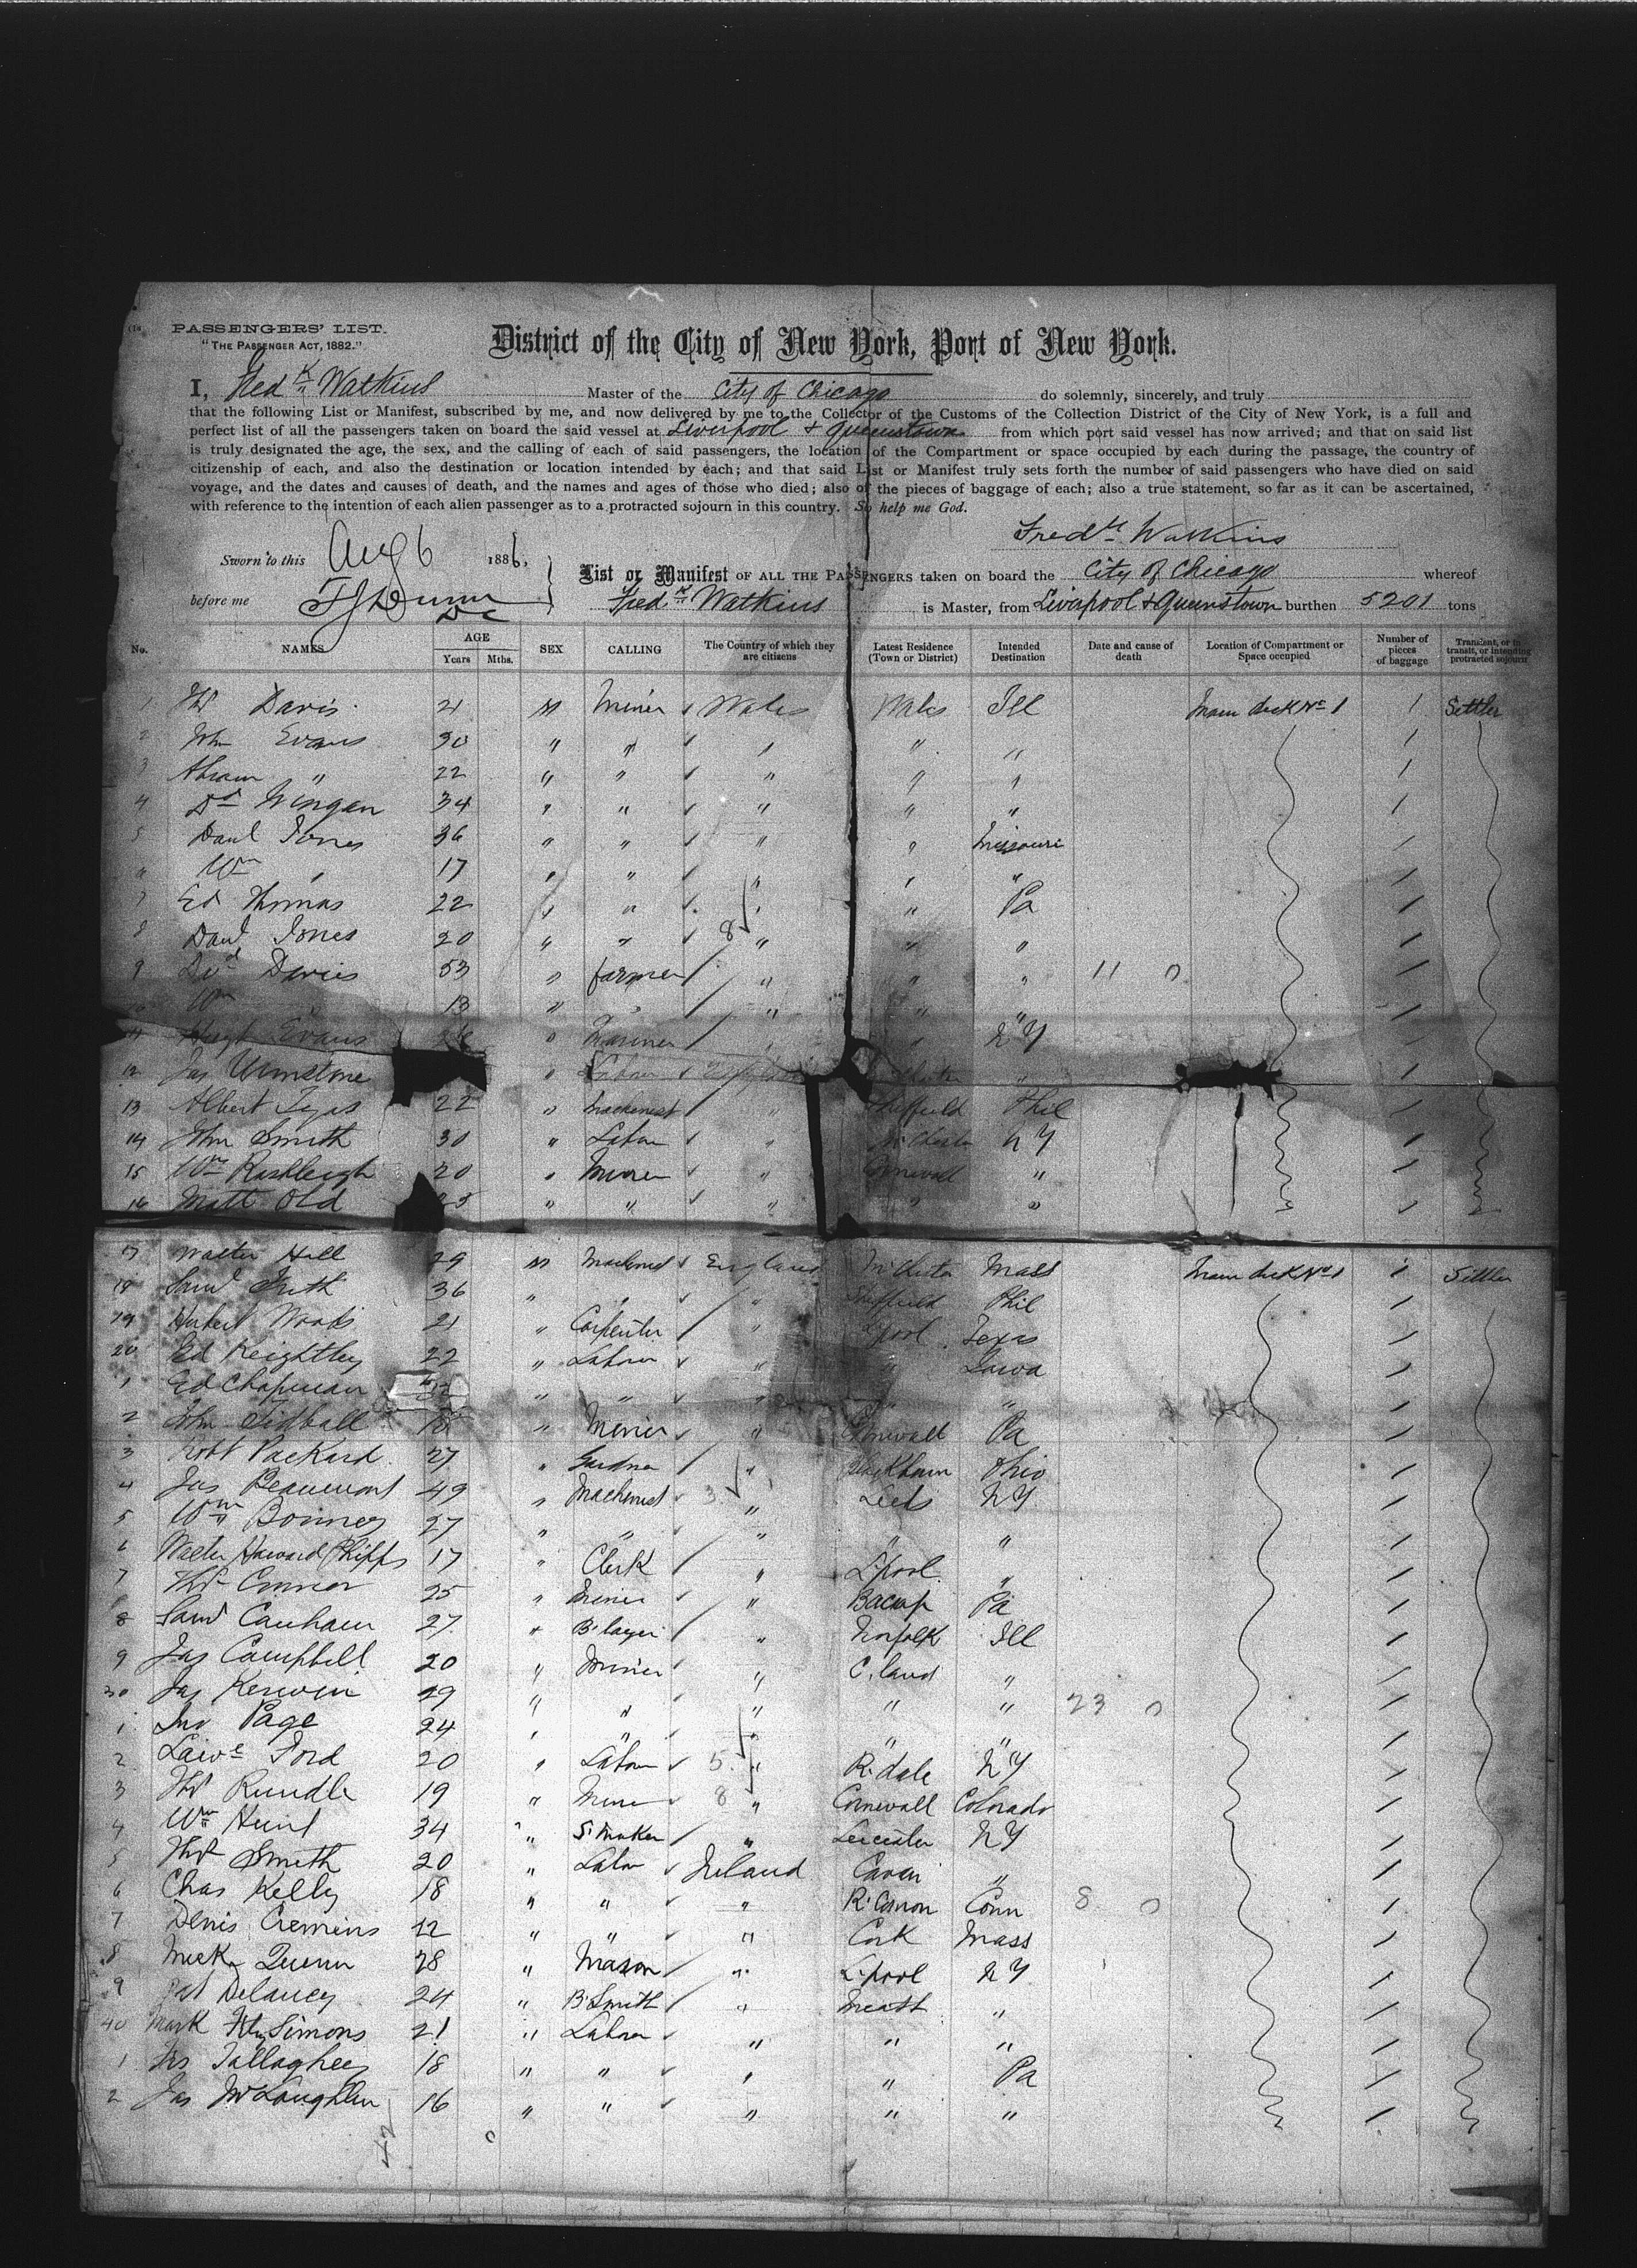 PASSENGERS' LIST.
"THE PASSENGER ACT, 1882."
District of the City of New York, Port of New York.
I, Fredk Watkins Master of the City of Chicago do solemnly, sincerely, and truly
that the following List or Manifest, subscribed by me, and now delivered by me to the Collector of the Customs of the Collection District of the City of New York, is a full and
perfect list of all the passengers taken on board the said vessel at Liverpool & Queenstown from which port said vessel has now arrived; and that on said list
is truly designated the age, the sex, and the calling of each of said passengers, the location of the Compartment or space occupied by each during the passage, the country of
citizenship of each, and also the destination or location intended by each; and that said List or Manifest truly sets forth the number of said passengers who have died on said
voyage, and the dates and causes of death, and the names and ages of those who died; also of the pieces of baggage of each; also a true statement, so far as it can be ascertained,
with reference to the intention of each alien passenger as to a protracted sojourn in this country. So help me God.
Fredk Watkins
Sworn to this Aug 6 1886,
List or Manifest OF ALL THE PASSENGERS taken on board the City of Chicago whereof
before me Fredk Watkins is Master, from Liverpool & Queenstown burthen 5201 tons
No. NAMES AGE Years Mths. SEX CALLING The Country of which they are citizens Latest Residence (Town or District) Intended Destination Date and cause of death Location of Compartment or Space occupied Number of pieces of baggage Transient, or in transit, or intending protracted sojourn
1 Thos Davis 21 M Miner Wales Wales Ill Main deck No 1 1 Settler
2 Jhn Evans 30 " " " " " 1
3 Abram " 22 " " " " " 1
4 Dd 34 " " " " " 1
5 Danl Jones 36 " " " " Missouri 1
" Wm " 17 " " " " " 1
7 Ed Thomas 22 " " " " Pa 1
8 Danl Jones 20 " " 8 " " " 1
9 Dvd Davies 53 " farmer " " " 11 0 1
10 Wm " 13 " " " " " 1
11 Hugh Evans " " " NY 1
12 Jas " Labour " 1
13 Albert 22 " Machinist " Sheffield Phil 1
14 Jhn Smith 30 " Labour " M'chester NY 1
15 Wm Rashleigh 20 " Miner " Cornwall " 1
16 Matt Old 25 " " " " " 1
17 Walter Hall 29 M Machinist England M'chester Mass Main deck No 1 1 Settler
18 Saml Frith 36 " " " Sheffield Phil 1
19 Herbert Woods 21 " Carpenter " L'pool Texas 1
20 Ed Keightley 22 " Labour " " Iowa 1
1 Ed Chapman " " " " " 1
2 John Tidball 18 " Miner " Cornwall Pa 1
3 Robt Packard 27 " Gardner " Ohio 1
4 Jas Beaumont 49 " Machinist 3 " Leeds NY 1
5 Wm Bonney 27 " " " " " 1
6 Walter Howard Phipps 17 " Clerk " L'pool " 1
7 Thos Connor 25 " Miner " Bacup Pa 1
8 Saml Canham 27 " B'layer " Norfolk Ill 1
9 Jas Campbell 20 " Miner " C.land " 1
30 Jas Kerwin 29 " " " " " 23 0 1
1 Jno Page 24 " " " " " 1
2 Lawce Ford 20 " Labour 5 " R.dale NY 1
3 Thos Rundle 19 " Miner 8 " Cornwall Colorado 1
4 Wm Hunt 34 " S'maker " Leicester NY 1
5 Thos Smith 20 " Labor Ireland Cavan " 1
6 Chas Kelly 18 " " " R'Comon Conn 8 0 1
7 Denis Cremins 22 " " " Cork Mass 1
8 Mick Quinn 28 " Mason " L'pool NY 1
9 Pat Delaney 24 " B'Smith " Meath " 1
40 Mark FitzSimons 21 " Labour " " " 1
1 18 " " " " Pa 1
2 Jas McLaughlin 16 " " " " " 1
42 0